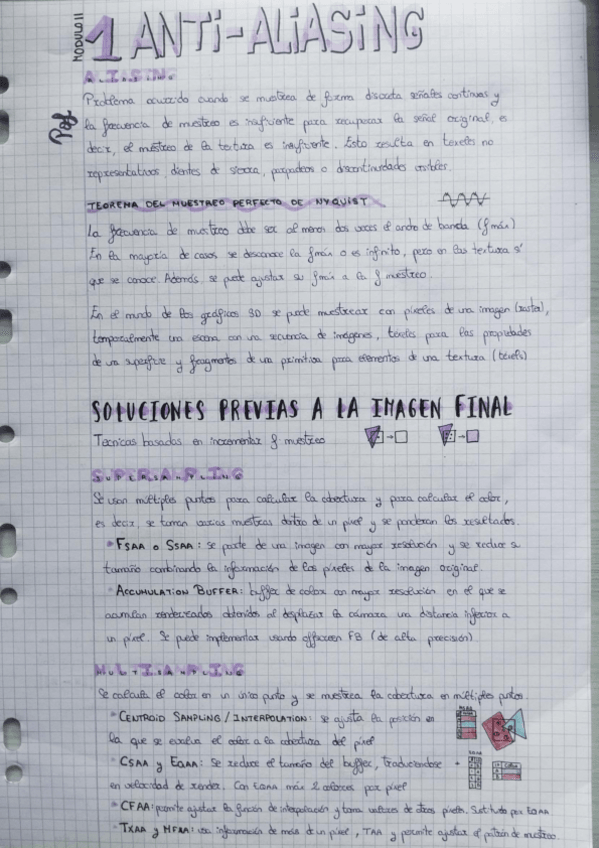 MODULO II
1 ANTI-ALIASING
ALIASING
Problema ocurrido cuando se muestrea de forma discreta señales continuas y
la frecuencia de muestreo es insuficiente para recuperar la señal original, es
decir, el muestreo de la textura es insuficiente. Esto resulta en texeles no
representativos, dientes de sierra, parpadeos o discontinuidades visibles.
TEOREMA DEL MUESTREO PERFECTO DE NYQUIST
La frecuencia de muestreo debe ser al menos dos veces el ancho de banda (fmáx)
En la mayoría de casos se desconoce la fmáx o es infinito, pero en las textura sí
que se conoce. Además se puede ajustar su fmáx a la f muestreo.
En el mundo de los gráficos 3D se puede muestrear con píxeles de una imagen (raster),
temporalmente una escena con una secuencia de imágenes, texeles para las propiedades
de una superficie y fragmentos de una primitiva para elementos de una textura (texels)
SOLUCIONES PREVIAS A LA IMAGEN FINAL
Tecnicas basadas en incrementar f muestreo
SUPERSAMPLING
Se usan múltiples puntos para calcular la cobertura y para calcular el color,
es decir, se toman varias muestras dentro de un pixel y se ponderan los resultados.
• FSAA o SSAA: se parte de una imagen con mayor resolución y se reduce su
tamaño combinando la información de los píxeles de la imagen original.
• ACCUMULATION BUFFER: buffer de color con mayor resolución en el que se
acumulan renderizados obtenidos al desplazar la cámara una distancia inferior a
un pixel. Se puede implementar usando offscreen FB (de alta precisión)
MULTISAMPLING
Se calcula el color en un único punto y se muestrea la cobertura en múltiples puntos.
• CENTROID SAMPLING / INTERPOLATION: se ajusta la posición en
la que se evalua el color a la cobertura del pixel
• CSAA y EQAA: Se reduce el tamaño del buffer, traduciendose
en velocidad de render. Con EQAA más 2 colores por pixel
• CFAA: permite ajustar la función de interpolación y toma valores de otros pixels. Sustituido por EQAA
• TXAA y MFAA: usa información de más de un pixel, TAA y permite ajustar el patrón de muestreo